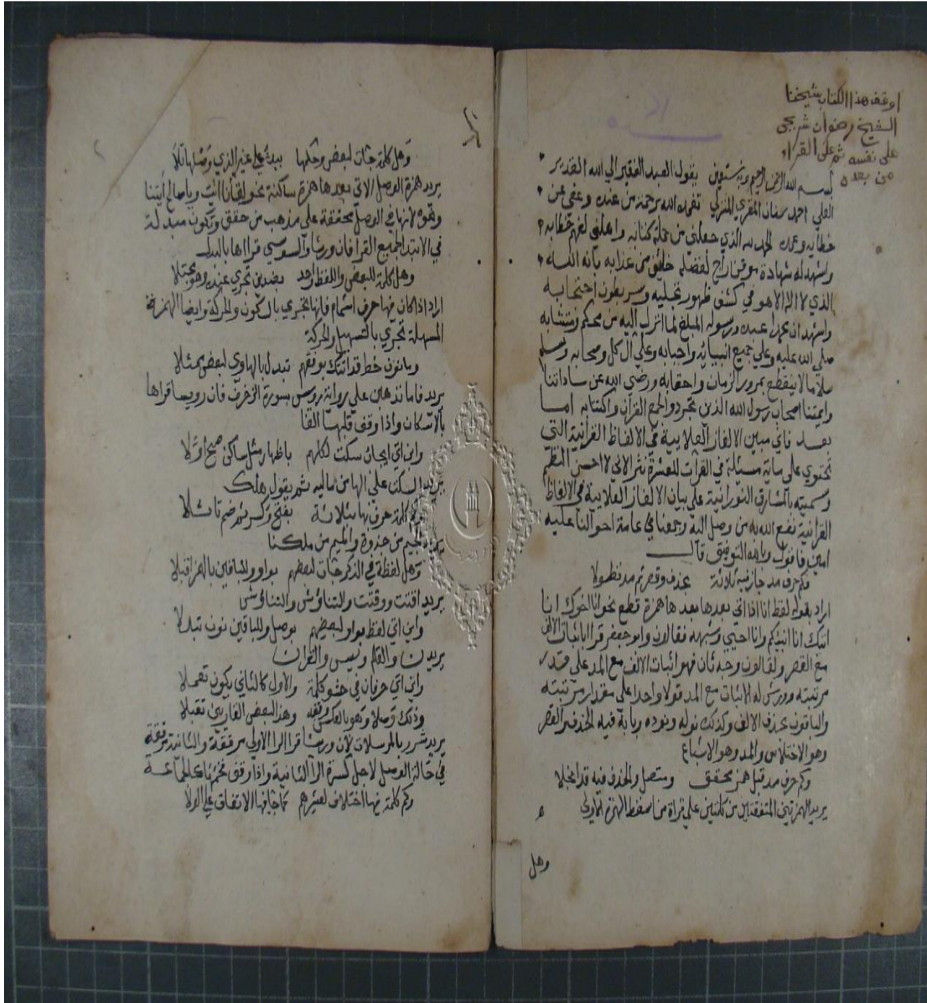 اوقف هذا الكتاب شيخنا
الشيخ رضوان شربجي
على نفسه ثم على القراء
من بعده
بسم الله الرحمن الرحيم وبه نستعين يقول العبد الفقير الي الله القدير
العلي احمد المقري المنزلي تغمده الله برحمة من عنده وعفى عن
خطايه وعمده الحمد لله الذي جعلني من حملة كتابه واهلني لفهم خطابه
واشهد له شهادة موقن راج لفضله خائف من عذابه بأنه الله
الذي لا اله الا هو في كشف ظهور تجليه وسر بطون احتجابه
واشهد ان محمدا عبده ورسوله المبلغ لما انزل اليه من محكم ومتشابه
صلى الله عليه وعلي جميع انبيائه واحبابه وعلي آل كل وصحابه وسلم
سلاما لا ينقطع بمرور الزمان واحقابه ورضي الله عن ساداتنا
وايمتنا اصحاب رسول الله الذين تجردوا لجمع القرآن واكتتابه اما
بعد فاني مبين الالغاز العلايية في الالفاظ القرآنية التي
تحتوي على ماية مسئلة في القرات للعشرة نثر الالي لا احسن المنظم
وسميته بالمشارق النورانية على بيان الالغاز العلايية في الالفاظ
القرانية نفع الله به من وصل اليه وجمعنا في عامة احوالنا عليه
امين فاقول وبالله التوفيق قال
وكم حرف مد جاز فيه ثلاثة بحذف وقصر ثم مد تطولا
اراد بقوله لفظ انا اذا اتى بعدها همزة قطع نحو انا اخوك انا
اتيك انا انبئكم وانا احيي وشبهه فقالون وابو جعفر قرا باثبات الالف
مع القصر ولقالون وجه ثان فهو اثبات الالف مع المد على قدر
مرتبته وورش له الاثبات مع المد قولا واحدا على مقدار مرتبته
والباقون بحذف الالف وكذلك نوله ونوده وبابه فيه الحذف والقصر
وهو الاختلاس والمد وهو الاشباع
وكم حرف مد قبل همز محقق ومتصل والحذف فيه قد انجلا
يريد الهمزتين المتفقتين من كلمتين علي قراة من اسقط الهمزة الاولي
وهل
وهل كلمة جات لبعض وحكمها ببدء على غير الذي وصلها تلا
يريد همزة الوصل الاتي بعدها همزة ساكنة نحو لقأنا ائت ويا صالح ائتنا
وهو لانها في الوصل محققة على مذهب من حقق وتكون مبدلة
في الابتداء لجميع القرا فان ورشا والسوسي قراها بالبدل
وهل كلمة للبعض واللفظ واحد بضدين تجري عنده وهو يجتلا
اراد اذا كان فيها حرف اشمام فانها تجري بالسكون والحركة وايضا الهمزة
المسهلة تجري بالتسهيل والحركة
وما نون خط قد اتتك بوقفهم تبدلها الهاوي لبعض تمثلا
يريد فاما نذهبن علي رواية رويس بسورة الزخرف فان رويسا قراها
بالاسكان واذا وقف قلبها الفا
واين اتى ايجاب سكت لكلهم باظهار مثل ساكن صح اولا
يريد السكت علي الها من ماليه ثم يقول هلك
كلمة حرف بها بثلاثة بفتح وكسر ثم ضم تاثلا
يريد الجيم من جذوة والميم من ملكنا
وهل لفظة في الذكر جات لبعضهم بواو وللباقين بالهمز اقبلا
يريد اقتت ووقتت والتناؤش والتناوش
واين اتي لفظ بواو لبعضهم بوصل وللباقين نون تبدلا
يريد ن والقلم ويس والقران
واين اتى حرفان في حشو كلمة والاول كالثاني يكون تعملا
وذلك توصلا وهو بالعكس وقفه وهذا لبعض القاريين تقبلا
يريد بشرر بالمرسلات لان ورشا قرا الرا الاولي مرققة والثانية مرققة
في حالة الوصل لاجل كسرة الرا الثانية واذا وقف فخم كالجماعة
وكم كلمة فيها اختلاف لعشرهم كما جا فيها الاتفاق علي الولا